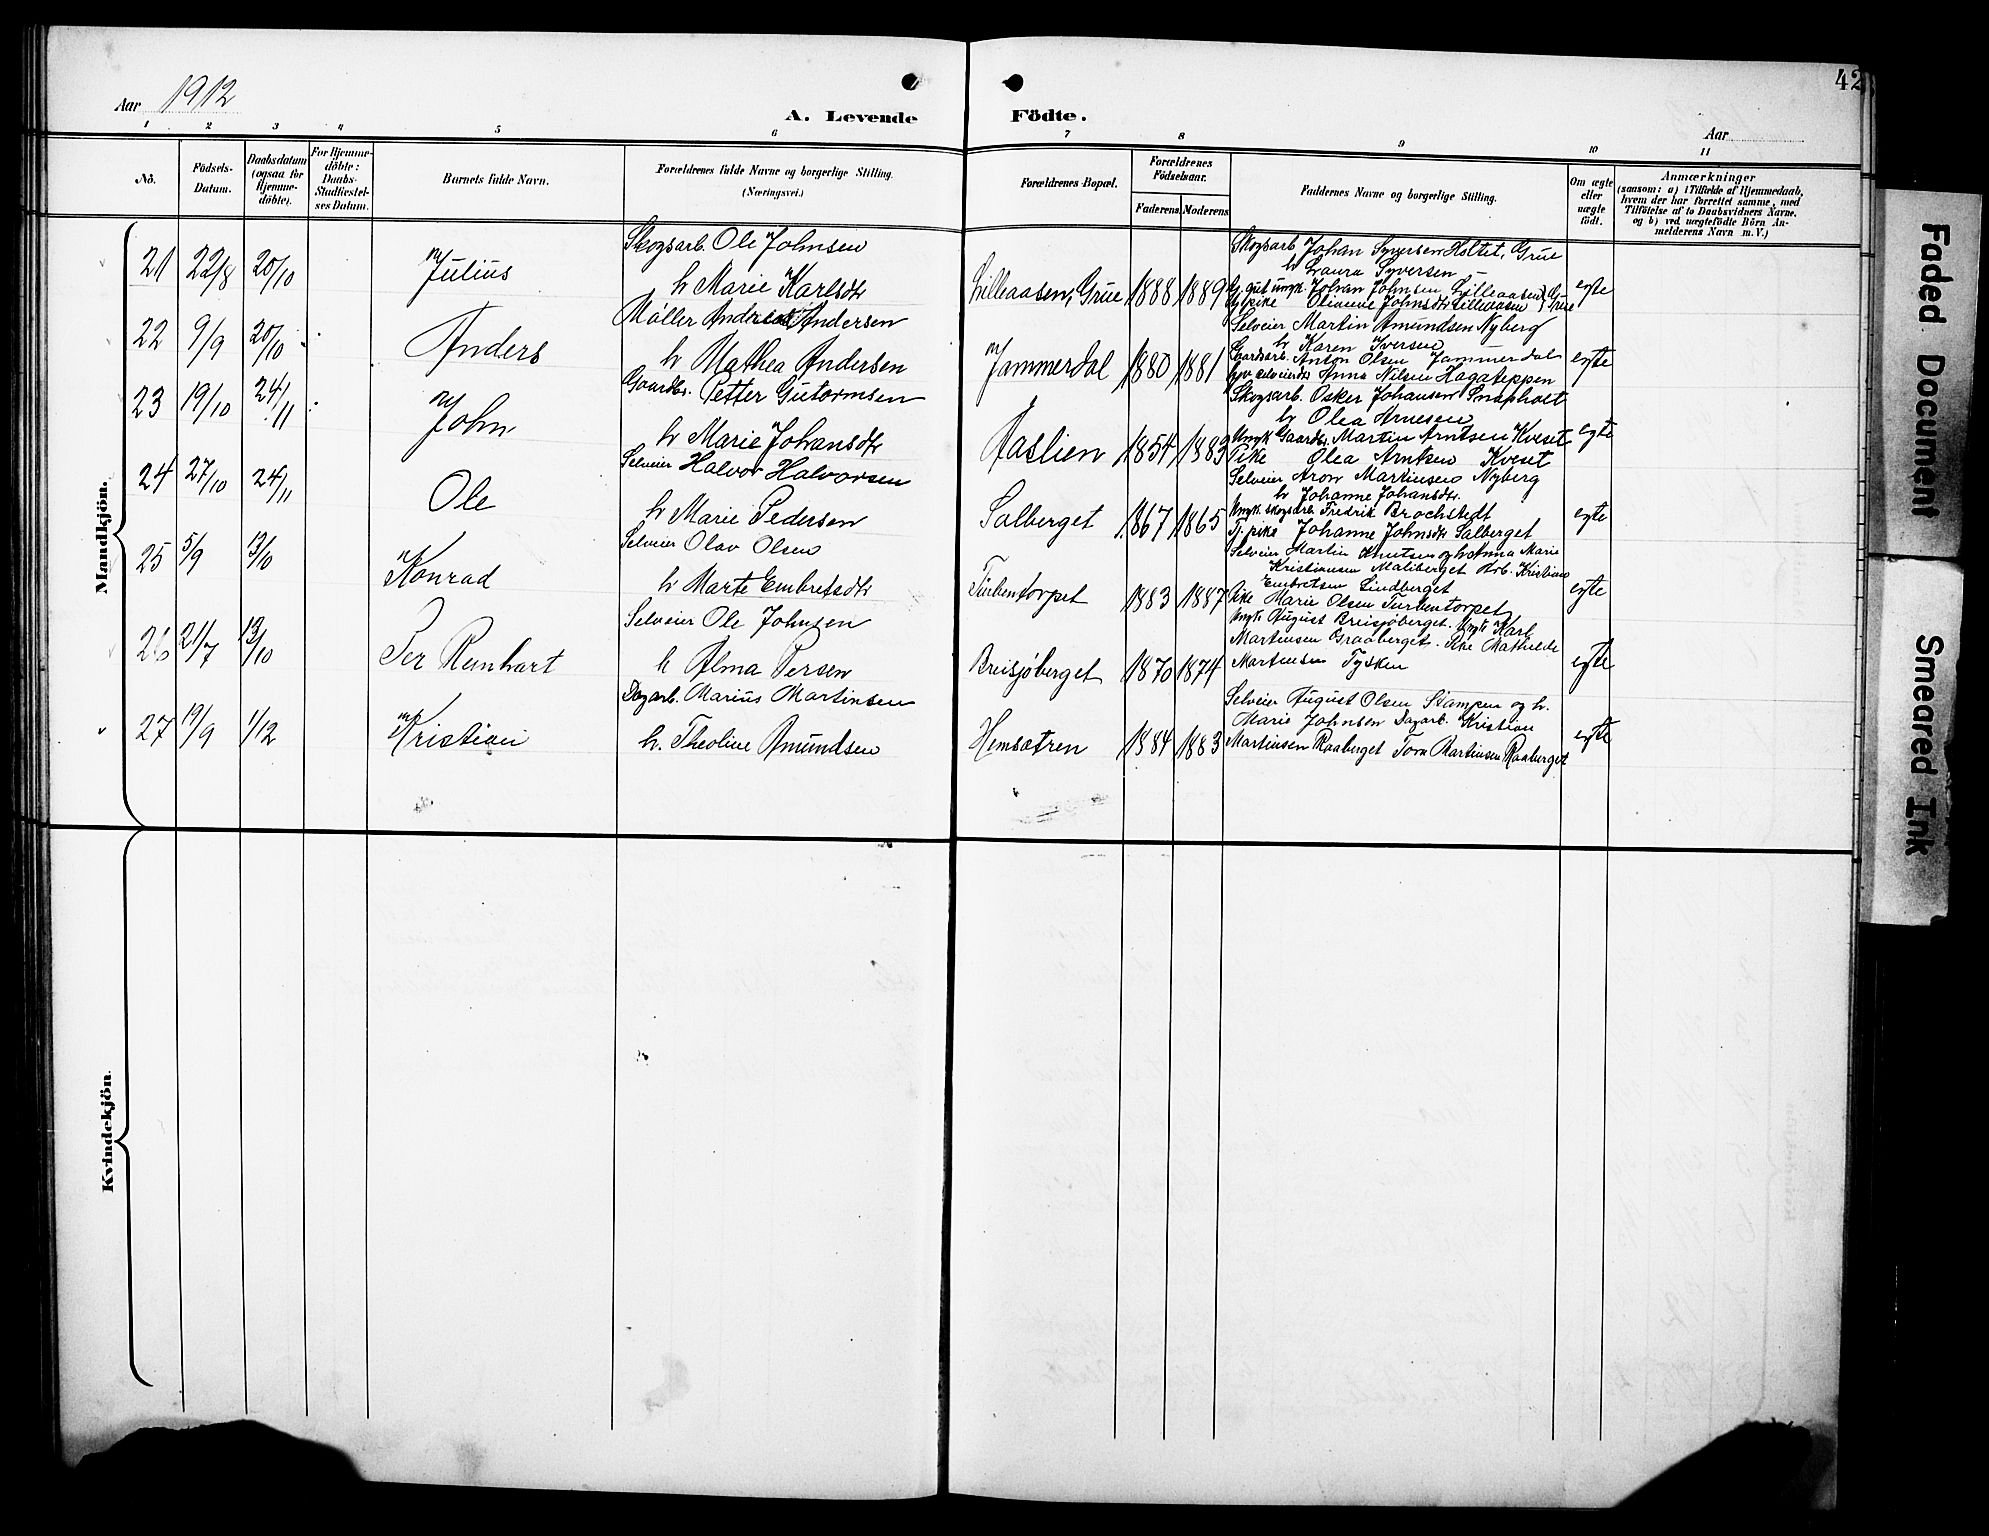 42
Aar 1912
A. Levende Födte.
Aar
1 2 3 4 5 6 7 8 9 10 11
No.
Födsels-Datum.
Daabsdatum (ogsaa for Hjemmedöbte).
For Hjemmedöbte: Daabs-Stadfæstelses Datum.
Barnets fulde Navn.
Forældrenes fulde Navne og borgerlige Stilling. (Næringsvei.)
Forældrenes Bopæl.
Forældrenes Födselsaar.
Faderens. Moderens.
Faddernes Navne og borgerlige Stilling.
Om ægte eller uægte født.
Anmærkninger
(saasom: a) i Tilfælde af Hjemmedaab,
hvem der har forrettet samme, med
Tilföielse af to Daabsvidners Navne,
og b) ved uægtefödte Börn Anmelderens Navn m. V.)
Mandkjön.
21 22/8 20/10 Julius
Skogsarb. Ole Johnsen
h Marie Karlsdtr
Lilleaasen, Grue 1888 1889
Skogsarb Johan Syversen Holtet, Grue
h Laura Syversen
G. gut umyk. Johan Johnsen Lilleaasen
Olianne Johnsdtr Lilleaasen Grue
egte
22 9/9 20/10 Anders
Møller Andreas Andersen
h Mathea Andersen
Jammerdal 1880 1881
Selveier Martin Amundsen Nyberg
h Karen Iversen
Gaardarb. Anton Olsen Jammerdal
Anna Nilsen Hagateppen
egte
23 19/10 24/11 John
Gaardbr. Petter Gutormsen
h Marie Johansdtr
Aaslien 1854 1883
Skogsarb. Osker Johansen Snapholt
h Olea Arnesen
Umyk Gaardbr. Martin Arntsen Kveset
Pike Olea Arntsen Kveset
egte
24 27/10 24/11 Ole
Selveier Halvor Halvorsen
h Marie Pedersen
Salberget 1867 1865
Selveier Aron Martinsen Nyberg
h Johanne Johansdtr.
Umyk. skogsarb Fredrik Brochstedt
Tj. pike Johanne Johnsdtr Salberget
egte
25 5/9 13/10 Konrad
Selveier Olav Olsen
h Marte Embretsdtr
Turbentorpet 1883 1887
Selveier Martin Knutsen og h Anna Marie
Kristiansen Maliberget Arb. Kristian
Embretsen Lindberget
Pike Marie Olsen Turbentorpet
egte
26 21/7 13/10 Per Reinhart
Selveier Ole Johnsen
h Alma Persen
Breisjøberget 1870 1874
Umyk August Breisjøberget. Umyk Karl
Martinsen Graaberget. Pike Mathilde
Martinsen Tysken
egte
27 19/9 1/12 Kristian
Dagarb. Marius Martinsen
h. Theoline Amundsen
Hemsætren 1884 1883
Selveier August Olsen Stampen og h.
Marie Johnsen Dagarb. Kristian
Martinsen Raaberget Torn Martinsen Raaberget
egte
Kvindekjön.
Faded Document
Smeared Ink